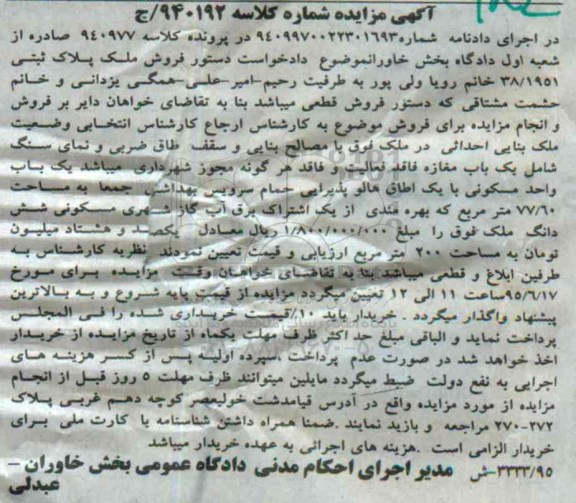 آگهی مزایده شماره کلاسه ۹۴۰۱۹۲/ج
در اجرای دادنامه شماره۹۴۰۹۹۷۰۰۲۲۳۰۱۶۹۳ در پرونده کلاسه ۹۴۰۹۷۷ صادره از
شعبه اول دادگاه بخش خاورانموضوع دادخواست دستور فروش ملک پلاک ثبتی
۳۸/۱۹۵۱ خانم رویا ولی پور به طرفیت رحیم-امیر-علی-همگی یزدانی و خانم
حشمت مشتاقی که دستور فروش قطعی میباشد بنا به تقاضای خواهان دایر بر فروش
و انجام مزایده برای فروش موضوع به کارشناس ارجاع کارشناس انتخابی وضعیت
ملک بنایی احداثی در ملک فوق با مصالح بنایی و سقف طاق ضربی و نمای سنگ
شامل یک باب مغازه فاقد فعالیت و فاقد هر گونه مجوز شهرداری میباشد یک باب
واحد مسکونی با یک اطاق هالو پذیرایی حمام سرویس بهداشتی جمعا به مساحت
۷۷/۶۰ متر مربع که بهره مندی از یک اشتراک برق آب گاز شهری مسکونی شش
دانگ ملک فوق را مبلغ ۱/۸۰۰/۰۰۰/۰۰۰ ریال معادل یکصد و هشتاد میلیون
تومان به مساحت ۲۰۰ متر مربع ارزیابی و قیمت تعیین نمودند نظریه کارشناس به
طرفین ابلاغ و قطعی میباشد بنا به تقاضای خواهان وقت مزایده برای مورخ
۹۵/۶/۱۷ساعت ۱۱ الی ۱۲ تعیین میگردد مزایده از قیمت پایه شروع و به بالاترین
پیشنهاد واگذار میگردد . خریدار باید ۱۰٪قیمت خریداری شده را فی المجلس
پرداخت نماید و الباقی مبلغ حداکثر ظرف مهلت یکماه از تاریخ مزایده از خریدار
اخذ خواهد شد در صورت عدم پرداخت سپرده اولیه پس از کسر هزینه های
اجرایی به نفع دولت ضبط میگردد مایلین میتوانند ظرف مهلت ۵ روز قبل از انجام
مزایده از مورد مزایده واقع در آدرس قیامدشت خولیعصر کوچه دهم غربی پلاک
۲۷۲-۲۷۰ مراجعه و بازید نمایند .ضمنا همراه داشتن شناسنامه یا کارت ملی برای
خریدار الزامی است .هزینه های اجرائی به عهده خریدار میباشد
۳۳۳۳/۹۵-ش مدیر اجرای احکام مدنی دادگاه عمومی بخش خاوران -
عبدلی